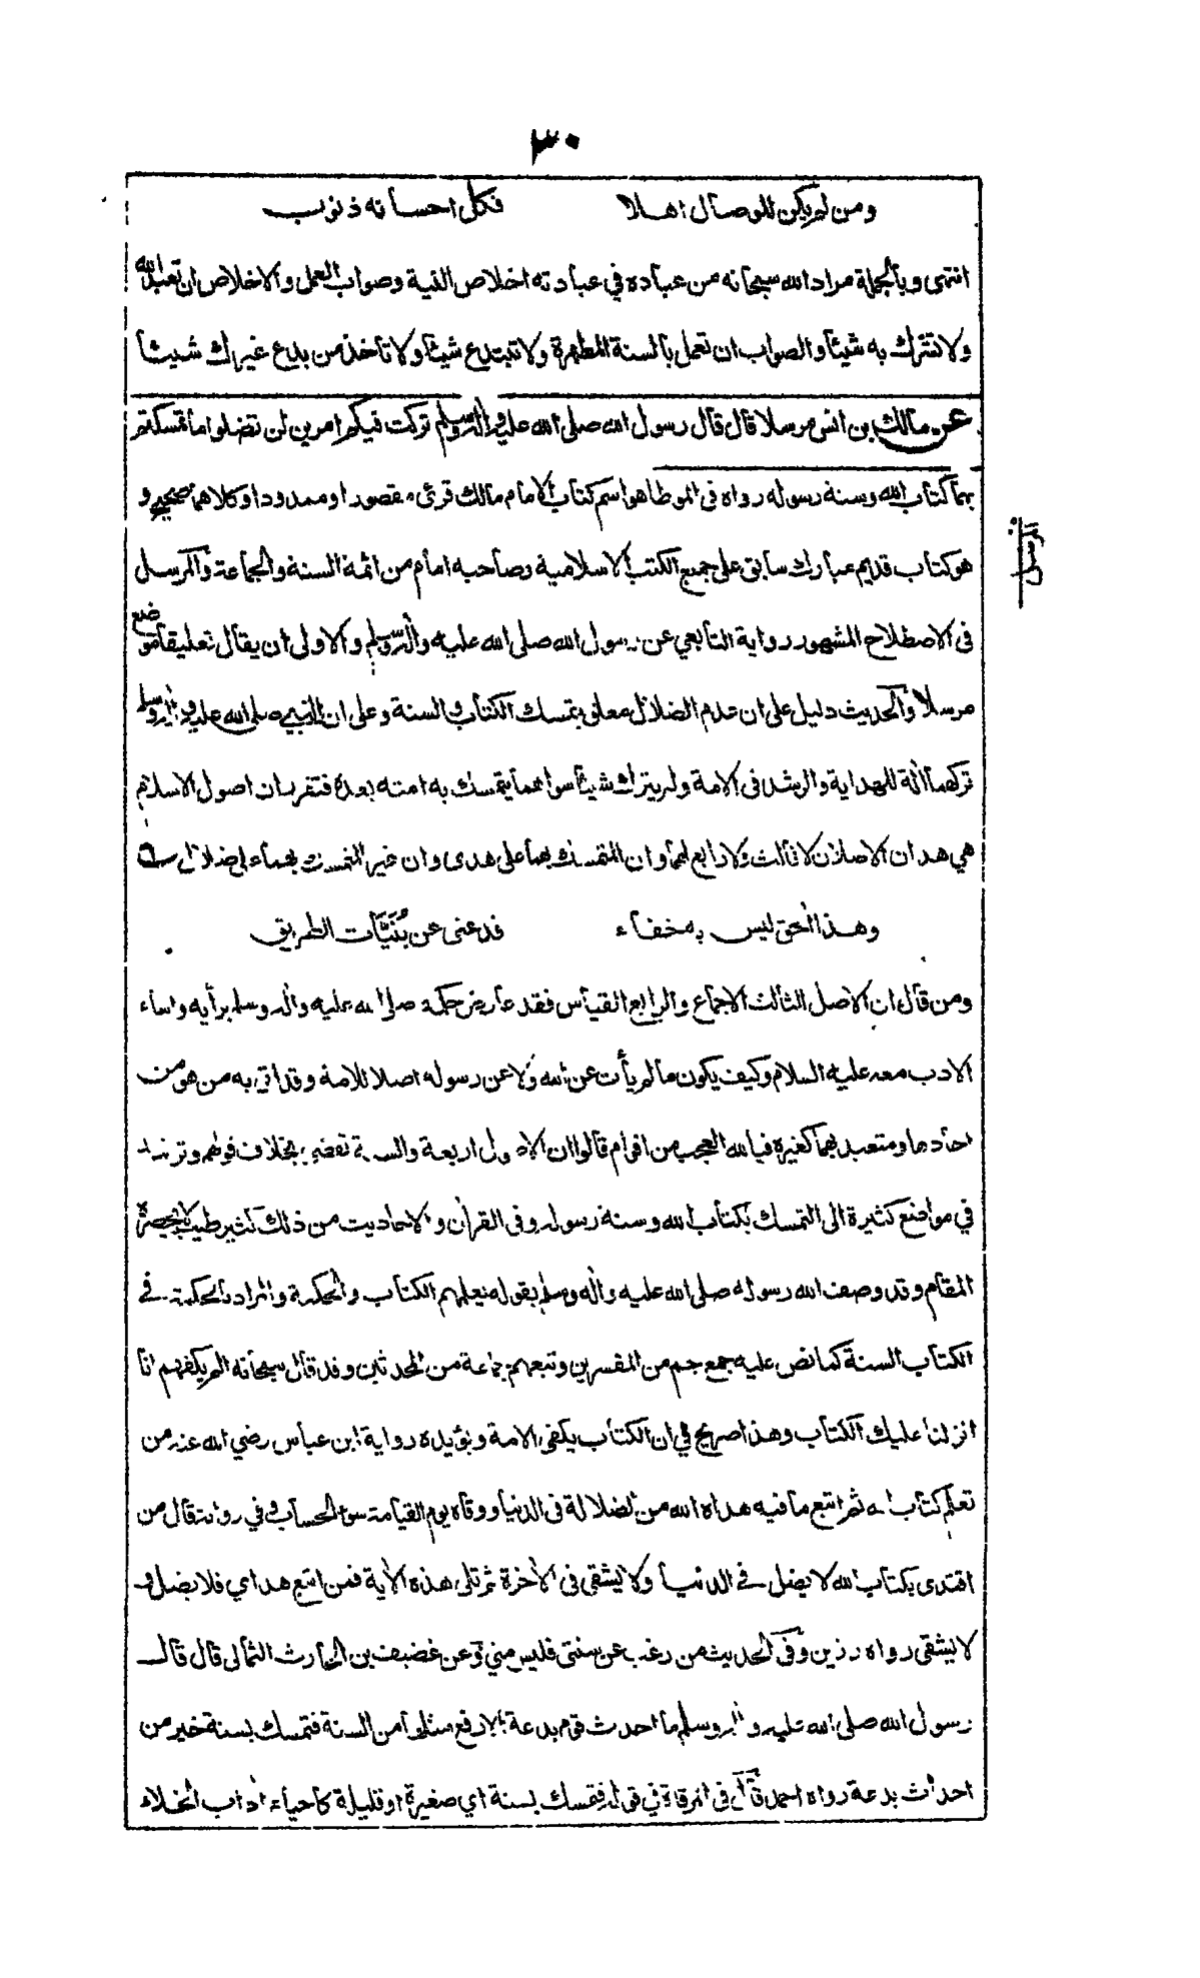 ٣٠
ومن لم يكن للوصال اهلا فكل احسانه ذنوب
انتهى وبالجملة مراد الله سبحانه من عباده في عبادته اخلاص النية وصواب العمل والاخلاص ان تعبد الله
ولا تشرك به شيئا والصواب ان تعمل بالسنة المطهرة ولا تبتدع شيئا ولا تاخذ من بدع غيرك شيئا
عن مالك بن انس مرسلا قال قال رسول الله صلى الله عليه واله وسلم تركت فيكم امرين لن تضلوا ما تمسكتم
بهما كتاب الله وسنة رسوله رواه فى الموطا هو اسم كتاب الامام مالك قرئ مقصورا وممدودا وكلاهما صحيح و
هو كتاب قديم مبارك سابق على جميع الكتب الاسلامية وصاحبه امام من ائمة السنة والجماعة والمرسل
فى الاصطلاح المشهور رواية التابعي عن رسول الله صلى الله عليه واله وسلم والاولى ان يقال تعليقا موضع
مرسلا والحديث دليل على ان عدم الضلال معلق بتمسك الكتاب والسنة وعلى ان النبي صلى الله عليه واله وسلم
تركهما الة للهداية والرشد فى الامة ولم يترك شيئا سواهما يتمسك به امته بعده فتقرر ان اصول الاسلام
هي هذان الاصلان لا ثالث ولا رابع لهما وان المتمسك بهما على هدى وان غير المتمسك بهما على ضلال
وهذا الحق ليس به خفاء فدعنى عن بُنَيَّات الطريق
ومن قال ان الاصل الثالث الاجماع والرابع القياس فقد عارض حكمه صلى الله عليه واله وسلم برأيه واساء
الادب معه عليه السلام وكيف يكون ما لم يأت عن الله ولا عن رسوله اصلا للامة وقد اتى به من هو من
احادها ومتعبد بهما كغيره فيا لله العجب من اقوام قالوا ان الاصول اربعة والسنة تقضي بخلاف قولهم وترشد
في مواضع كثيرة الى التمسك بكتاب الله وسنة رسوله وفى القران والاحاديث من ذلك كثير طيب لا يحصره
المقام وقد وصف الله رسوله صلى الله عليه واله وسلم بقوله يعلمهم الكتاب والحكمة والمراد بالحكمة في
الكتاب السنة كما نص عليه جمع جم من المفسرين وتبعهم جماعة من المحدثين وقد قال سبحانه اولم يكفهم انا
انزلنا عليك الكتاب وهذا صريح في ان الكتاب يكفى الامة ويؤيده رواية ابن عباس رضي الله عنه من
تعلم كتاب الله ثم اتبع ما فيه هداه الله من الضلالة فى الدنيا ووقاه يوم القيامة سوء الحساب وفي رواية قال من
اقتدى بكتاب الله لا يضل في الدنيا ولا يشقى فى الاخرة ثم تلى هذه الاية فمن اتبع هداي فلا يضل و
لا يشقى رواه رزين وفى الحديث من رغب عن سنتى فليس مني وعن غضيف بن الحارث الثمالى قال قال
رسول الله صلى الله عليه واله وسلم ما احدث قوم بدعة الا رفع مثلها من السنة فتمسك بسنة خير من
احداث بدعة رواه احمد قال فى المرقاة في قوله فتمسك بسنة اي صغيرة او قليلة كاحياء اداب الخلاء